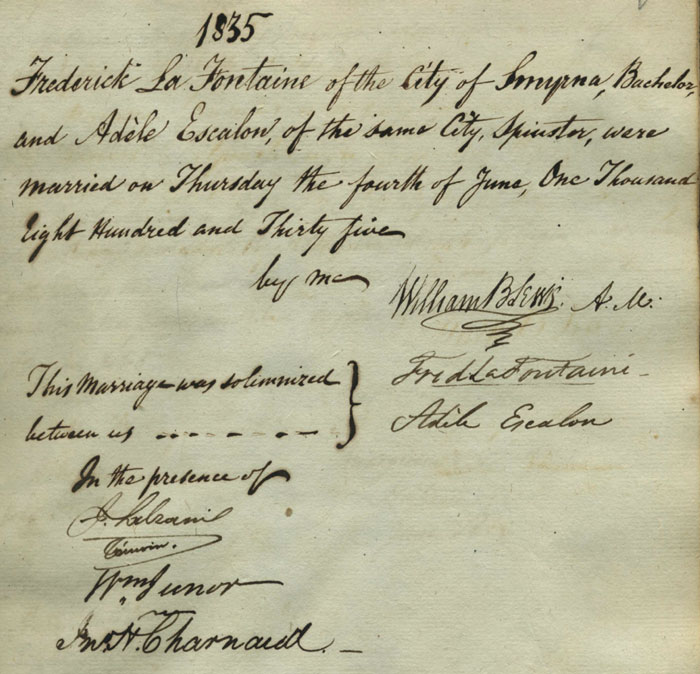 1835
Frederick La Fontaine of the City of Smyrna, Bachelor,
and Adèle Escalon, of the same City, Spinster, were
married on Thursday the fourth of June, One Thousand
Eight Hundred and Thirty five
by me
William B Lewis. A. M.
This Marriage was solemnized
between us
Fred La Fontaine
Adèle Escalon
In the presence of
témoin.
Wm Junor
Jno. H. Charnaud.